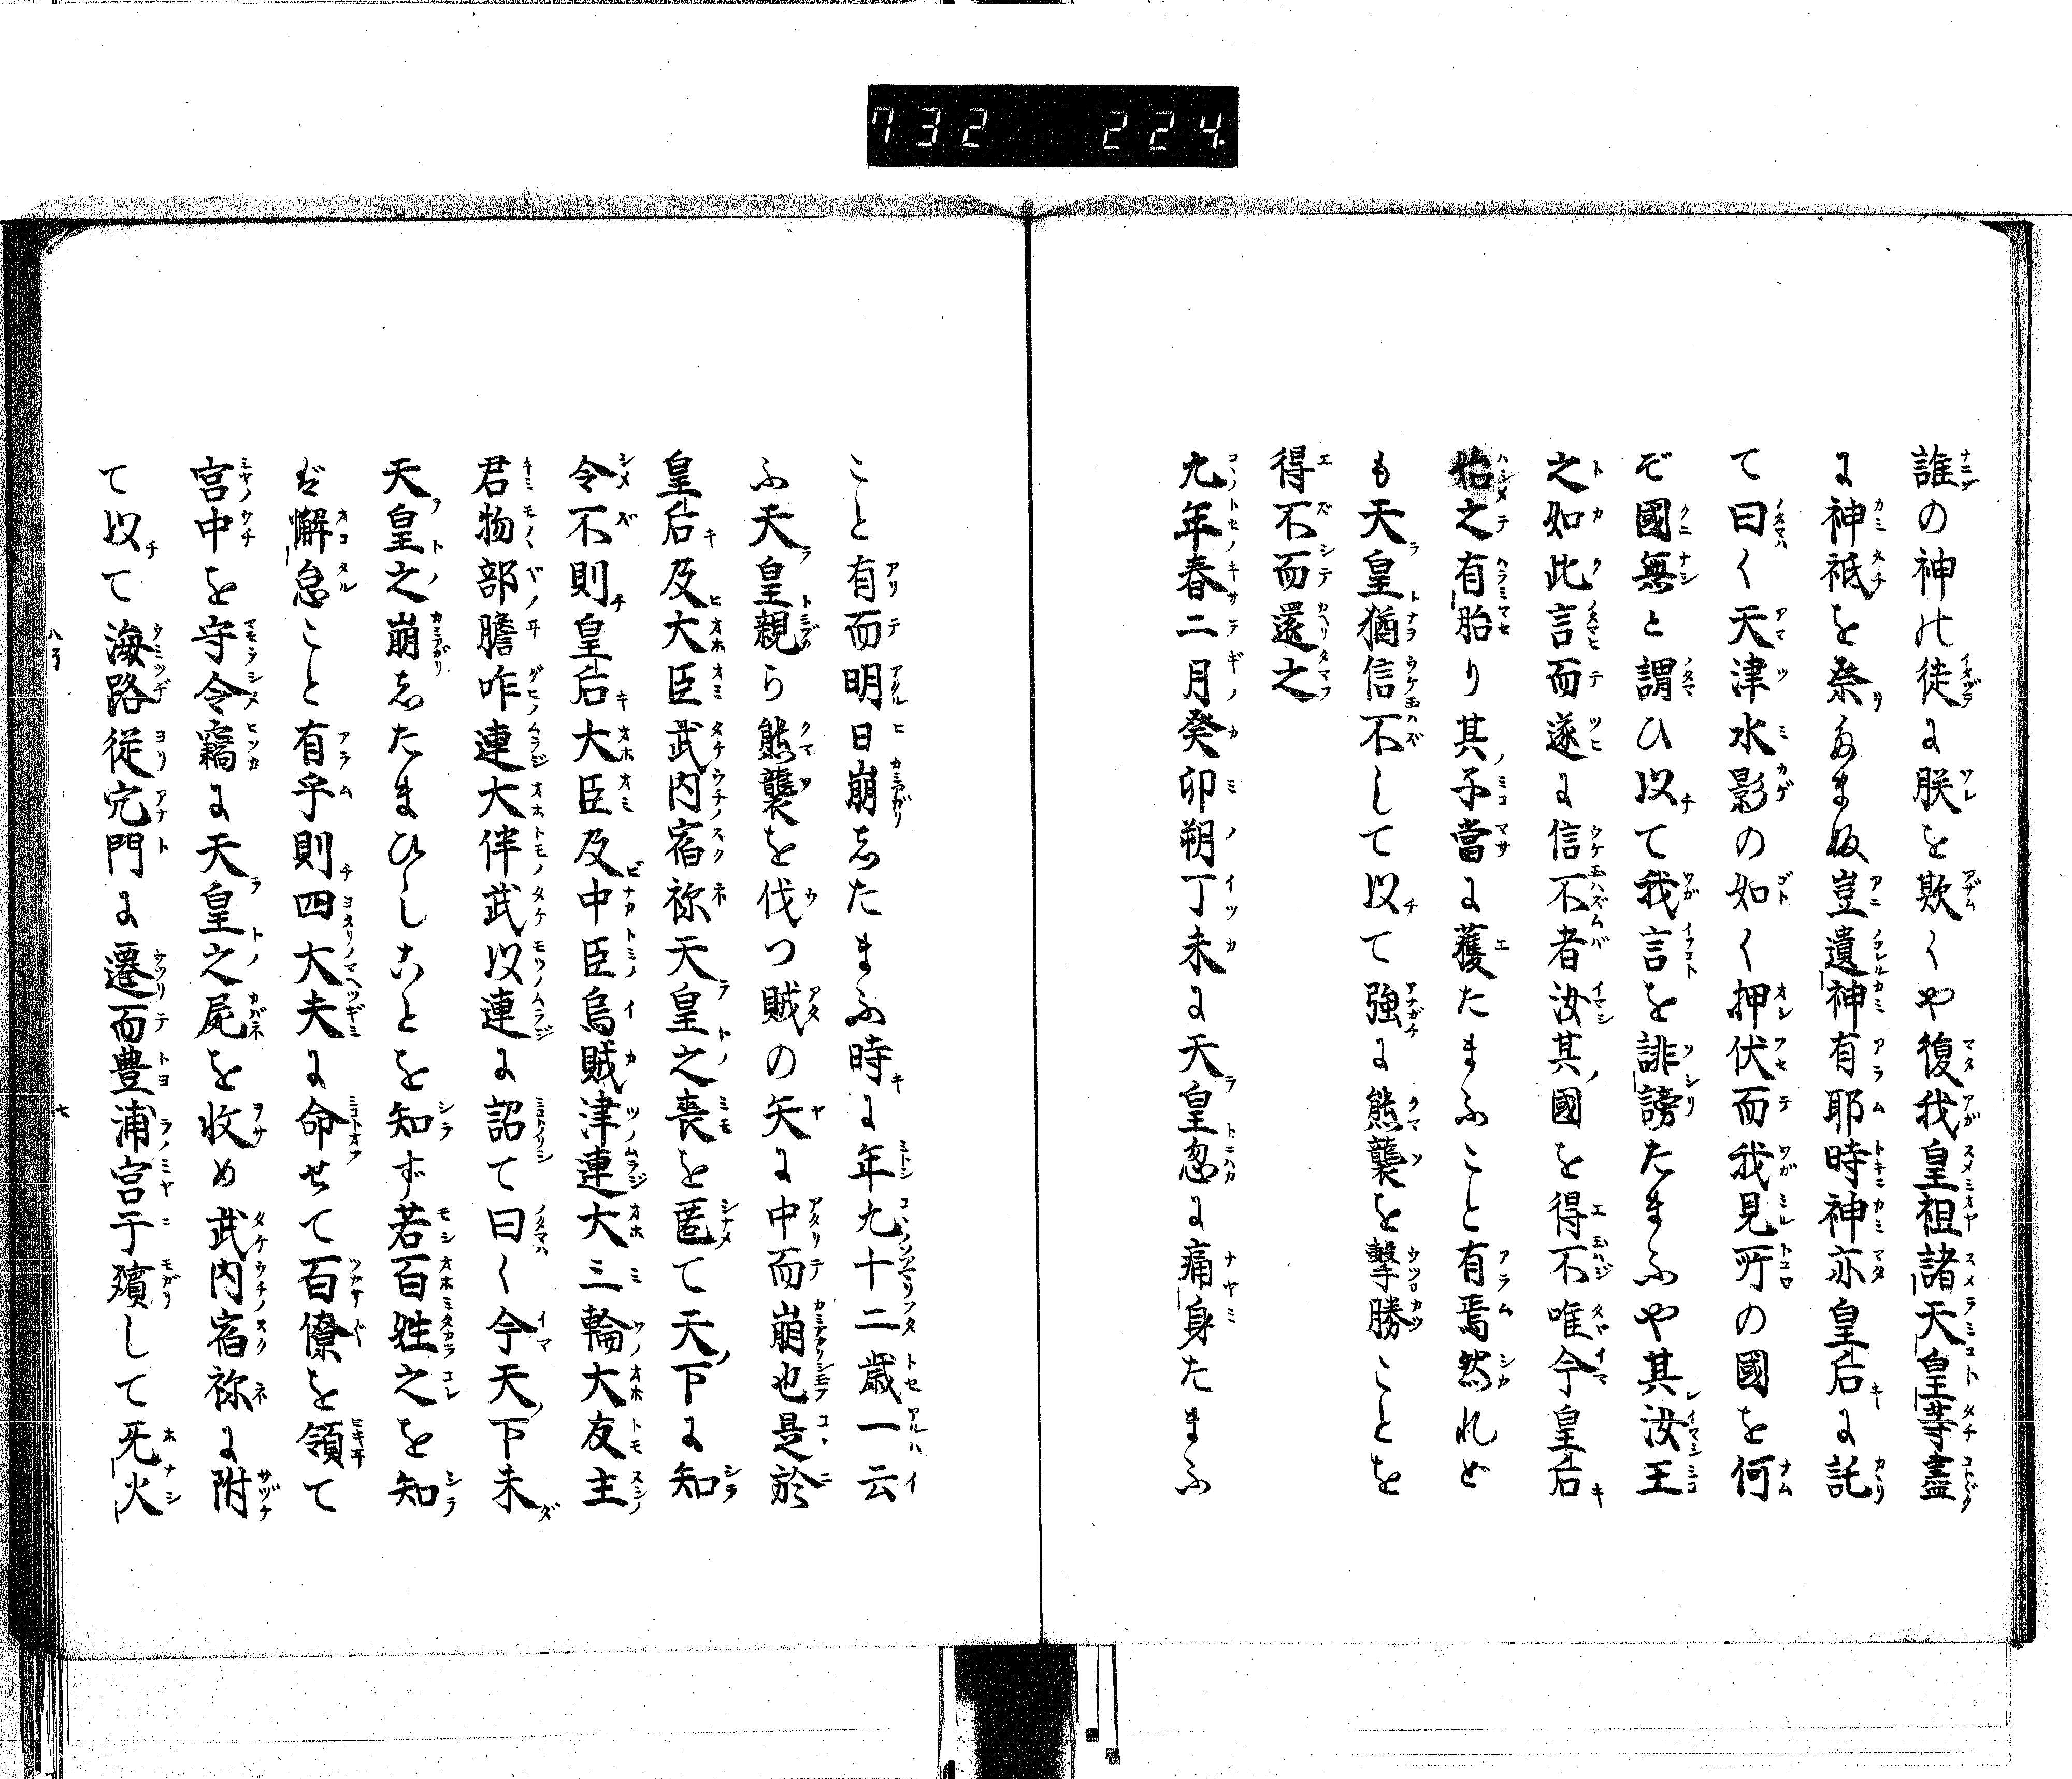 732 224
誰の神の徒に朕を欺くや復我皇祖諸天皇等盡
に神祇を祭たまへ豈遺神有耶時神亦皇后に託
て曰く天津水影の如く押伏而我見所の國を何
ぞ國無と謂ひ以て我言を誹謗たまふや其汝王
之如此言而遂に信不者汝其國を得不唯今皇后
始之有胎り其子當に獲たまふこと有焉然れど
も天皇猶信不して以て強に熊襲を擊勝ことを
得不而還之
九年春二月癸卯朔丁未に天皇忽に痛身たまふ
こと有而明日崩したまふ時に年九十二歳一云
ふ天皇親ら熊襲を伐つ賊の矢に中而崩也是於
皇后及大臣武内宿祢天皇之喪を匿て天下に知
令不則皇后大臣及中臣烏賊津連大三輪大友主
君物部膽咋連大伴武以連に詔て曰く今天下未
天皇之崩したまひしことを知ず若百姓之を知
ば懈怠こと有乎則四大夫に命せて百僚を領て
宮中を守令竊に天皇之屍を收め武内宿祢に附
て以て海路従穴門に遷而豊浦宮于殯して旡火
七